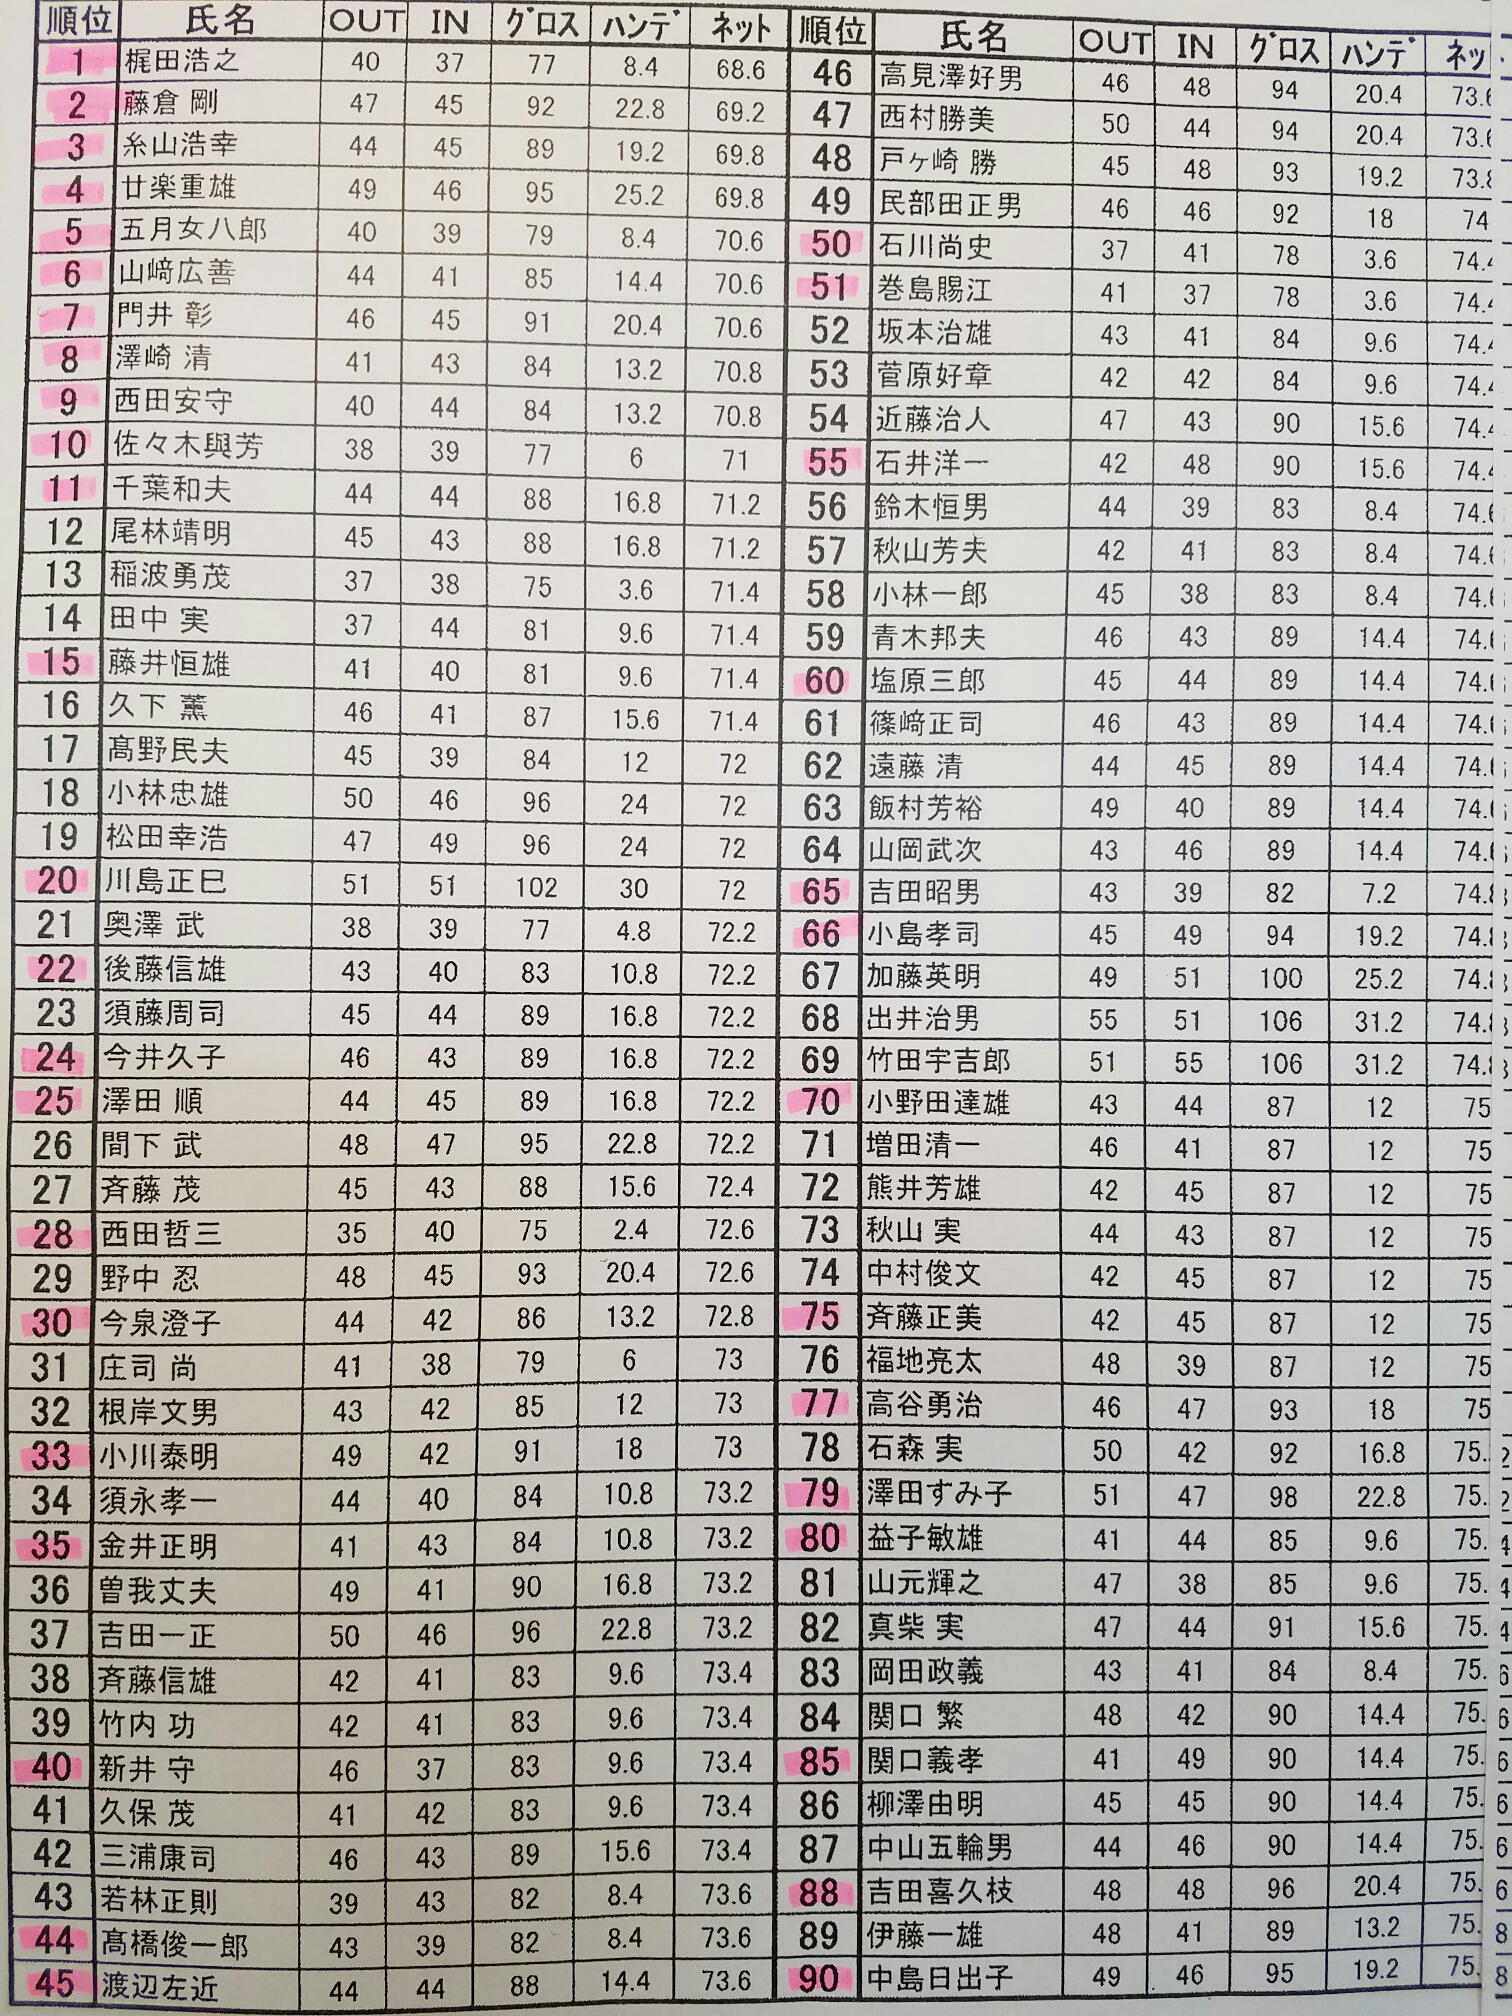 順位 氏名 OUT IN グロス ハンデ ネット
1 梶田浩之 40 37 77 8.4 68.6
2 藤倉 剛 47 45 92 22.8 69.2
3 糸山浩幸 44 45 89 19.2 69.8
4 廿楽重雄 49 46 95 25.2 69.8
5 五月女八郎 40 39 79 8.4 70.6
6 山﨑広善 44 41 85 14.4 70.6
7 門井 彰 46 45 91 20.4 70.6
8 澤崎 清 41 43 84 13.2 70.8
9 西田安守 40 44 84 13.2 70.8
10 佐々木與芳 38 39 77 6 71
11 千葉和夫 44 44 88 16.8 71.2
12 尾林靖明 45 43 88 16.8 71.2
13 稲波勇茂 37 38 75 3.6 71.4
14 田中 実 37 44 81 9.6 71.4
15 藤井恒雄 41 40 81 9.6 71.4
16 久下 薫 46 41 87 15.6 71.4
17 髙野民夫 45 39 84 12 72
18 小林忠雄 50 46 96 24 72
19 松田幸浩 47 49 96 24 72
20 川島正巳 51 51 102 30 72
21 奥澤 武 38 39 77 4.8 72.2
22 後藤信雄 43 40 83 10.8 72.2
23 須藤周司 45 44 89 16.8 72.2
24 今井久子 46 43 89 16.8 72.2
25 澤田 順 44 45 89 16.8 72.2
26 間下 武 48 47 95 22.8 72.2
27 斉藤 茂 45 43 88 15.6 72.4
28 西田哲三 35 40 75 2.4 72.6
29 野中 忍 48 45 93 20.4 72.6
30 今泉澄子 44 42 86 13.2 72.8
31 庄司 尚 41 38 79 6 73
32 根岸文男 43 42 85 12 73
33 小川泰明 49 42 91 18 73
34 須永孝一 44 40 84 10.8 73.2
35 金井正明 41 43 84 10.8 73.2
36 曽我丈夫 49 41 90 16.8 73.2
37 吉田一正 50 46 96 22.8 73.2
38 斉藤信雄 42 41 83 9.6 73.4
39 竹内 功 42 41 83 9.6 73.4
40 新井 守 46 37 83 9.6 73.4
41 久保 茂 41 42 83 9.6 73.4
42 三浦康司 46 43 89 15.6 73.4
43 若林正則 39 43 82 8.4 73.6
44 髙橋俊一郎 43 39 82 8.4 73.6
45 渡辺左近 44 44 88 14.4 73.6
順位 氏名 OUT IN グロス ハンデ ネッ
46 高見澤好男 46 48 94 20.4 73.6
47 西村勝美 50 44 94 20.4 73.6
48 戸ヶ崎 勝 45 48 93 19.2 73.8
49 民部田正男 46 46 92 18 74
50 石川尚史 37 41 78 3.6 74.4
51 巻島賜江 41 37 78 3.6 74.4
52 坂本治雄 43 41 84 9.6 74.4
53 菅原好章 42 42 84 9.6 74.4
54 近藤治人 47 43 90 15.6 74.4
55 石井洋一 42 48 90 15.6 74.4
56 鈴木恒男 44 39 83 8.4 74.6
57 秋山芳夫 42 41 83 8.4 74.6
58 小林一郎 45 38 83 8.4 74.6
59 青木邦夫 46 43 89 14.4 74.6
60 塩原三郎 45 44 89 14.4 74.6
61 篠﨑正司 46 43 89 14.4 74.6
62 遠藤 清 44 45 89 14.4 74.6
63 飯村芳裕 49 40 89 14.4 74.6
64 山岡武次 43 46 89 14.4 74.6
65 吉田昭男 43 39 82 7.2 74.8
66 小島孝司 45 49 94 19.2 74.8
67 加藤英明 49 51 100 25.2 74.8
68 出井治男 55 51 106 31.2 74.8
69 竹田宇吉郎 51 55 106 31.2 74.8
70 小野田達雄 43 44 87 12 75
71 増田清一 46 41 87 12 75
72 熊井芳雄 42 45 87 12 75
73 秋山 実 44 43 87 12 75
74 中村俊文 42 45 87 12 75
75 斉藤正美 42 45 87 12 75
76 福地亮太 48 39 87 12 75
77 高谷勇治 46 47 93 18 75
78 石森 実 50 42 92 16.8 75.2
79 澤田すみ子 51 47 98 22.8 75.2
80 益子敏雄 41 44 85 9.6 75.4
81 山元輝之 47 38 85 9.6 75.4
82 真柴 実 47 44 91 15.6 75.4
83 岡田政義 43 41 84 8.4 75.6
84 関口 繁 48 42 90 14.4 75.6
85 関口義孝 41 49 90 14.4 75.6
86 柳澤由明 45 45 90 14.4 75.6
87 中山五輪男 44 46 90 14.4 75.6
88 吉田喜久枝 48 48 96 20.4 75.6
89 伊藤一雄 48 41 89 13.2 75.8
90 中島日出子 49 46 95 19.2 75.8